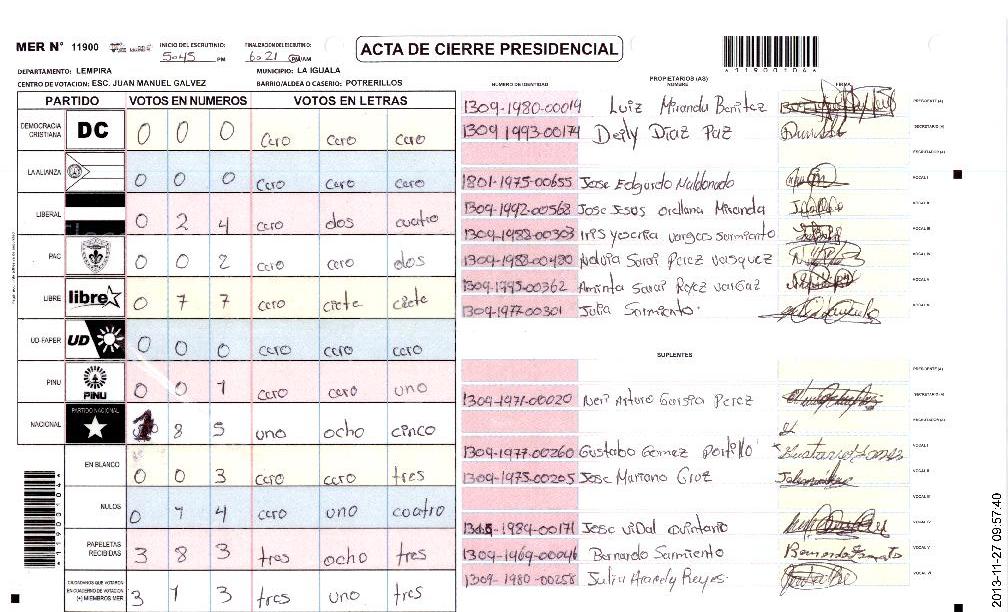 MER N° 11900
INICIO DEL ESCRUTINIO: 5:45 PM
FINALIZACION DEL ESCRUTINIO: 6:21 PM/AM
ACTA DE CIERRE PRESIDENCIAL
119001046
DEPARTAMENTO: LEMPIRA
MUNICIPIO: LA IGUALA
CENTRO DE VOTACION: ESC. JUAN MANUEL GALVEZ
BARRIO/ALDEA O CASERIO: POTRERILLOS
PARTIDO VOTOS EN NUMEROS VOTOS EN LETRAS
DEMOCRACIA CRISTIANA DC 0 0 0 cero cero cero
LA ALIANZA 0 0 0 cero cero cero
LIBERAL 0 2 4 cero dos cuatro
PAC 0 0 2 cero cero dos
LIBRE libre 0 7 7 cero ciete ciete
UD-FAPER UD 0 0 0 cero cero cero
PINU PINU 0 0 1 cero cero uno
NACIONAL PARTIDO NACIONAL 1 8 5 uno ocho cinco
EN BLANCO 0 0 3 cero cero tres
NULOS 0 1 4 cero uno cuatro
PAPELETAS RECIBIDAS 3 8 3 tres ocho tres
CIUDADANOS QUE VOTARON EN CUADERNO DE VOTACION (+) MIEMBROS MER 3 1 3 tres uno tres
119001046
PROPIETARIOS (AS)
NUMERO DE IDENTIDAD NOMBRE FIRMA
1309-1980-00014 Luiz Miranda Benitez PRESIDENTE (A)
1309 1993-00174 Deily Diaz Paz SECRETARIO (A)
ESCRUTADOR (A)
1801-1975-00655 Jose Edgardo Maldonado VOCAL I
1309-1992-00568 Jose Jesus orellana Miranda VOCAL II
1309-1988-00303 Iris yesenia vargas sarmiento VOCAL III
1309-1988-00480 Perez vasquez VOCAL IV
1309-1995-00362 Aminta Sarai Reyez vargaz VOCAL V
1309-1977-00301 Julia Sarmiento VOCAL VI
SUPLENTES
PRESIDENTE (A)
1309-1971-00020 Neri Arturo Garsia Perez SECRETARIO (A)
ESCRUTADOR (A)
1309-1977-00260 Gustabo Gomez Portillo VOCAL I
1309-1975-00205 Jose Mariano Cruz VOCAL II
VOCAL III
1984-00171 Jose vidal quintanio VOCAL IV
1309-1969-00046 Bernardo Sarmiento VOCAL V
1309-1980-00258 Julia Aracely Reyes VOCAL VI
2013-11-27 09:57:40